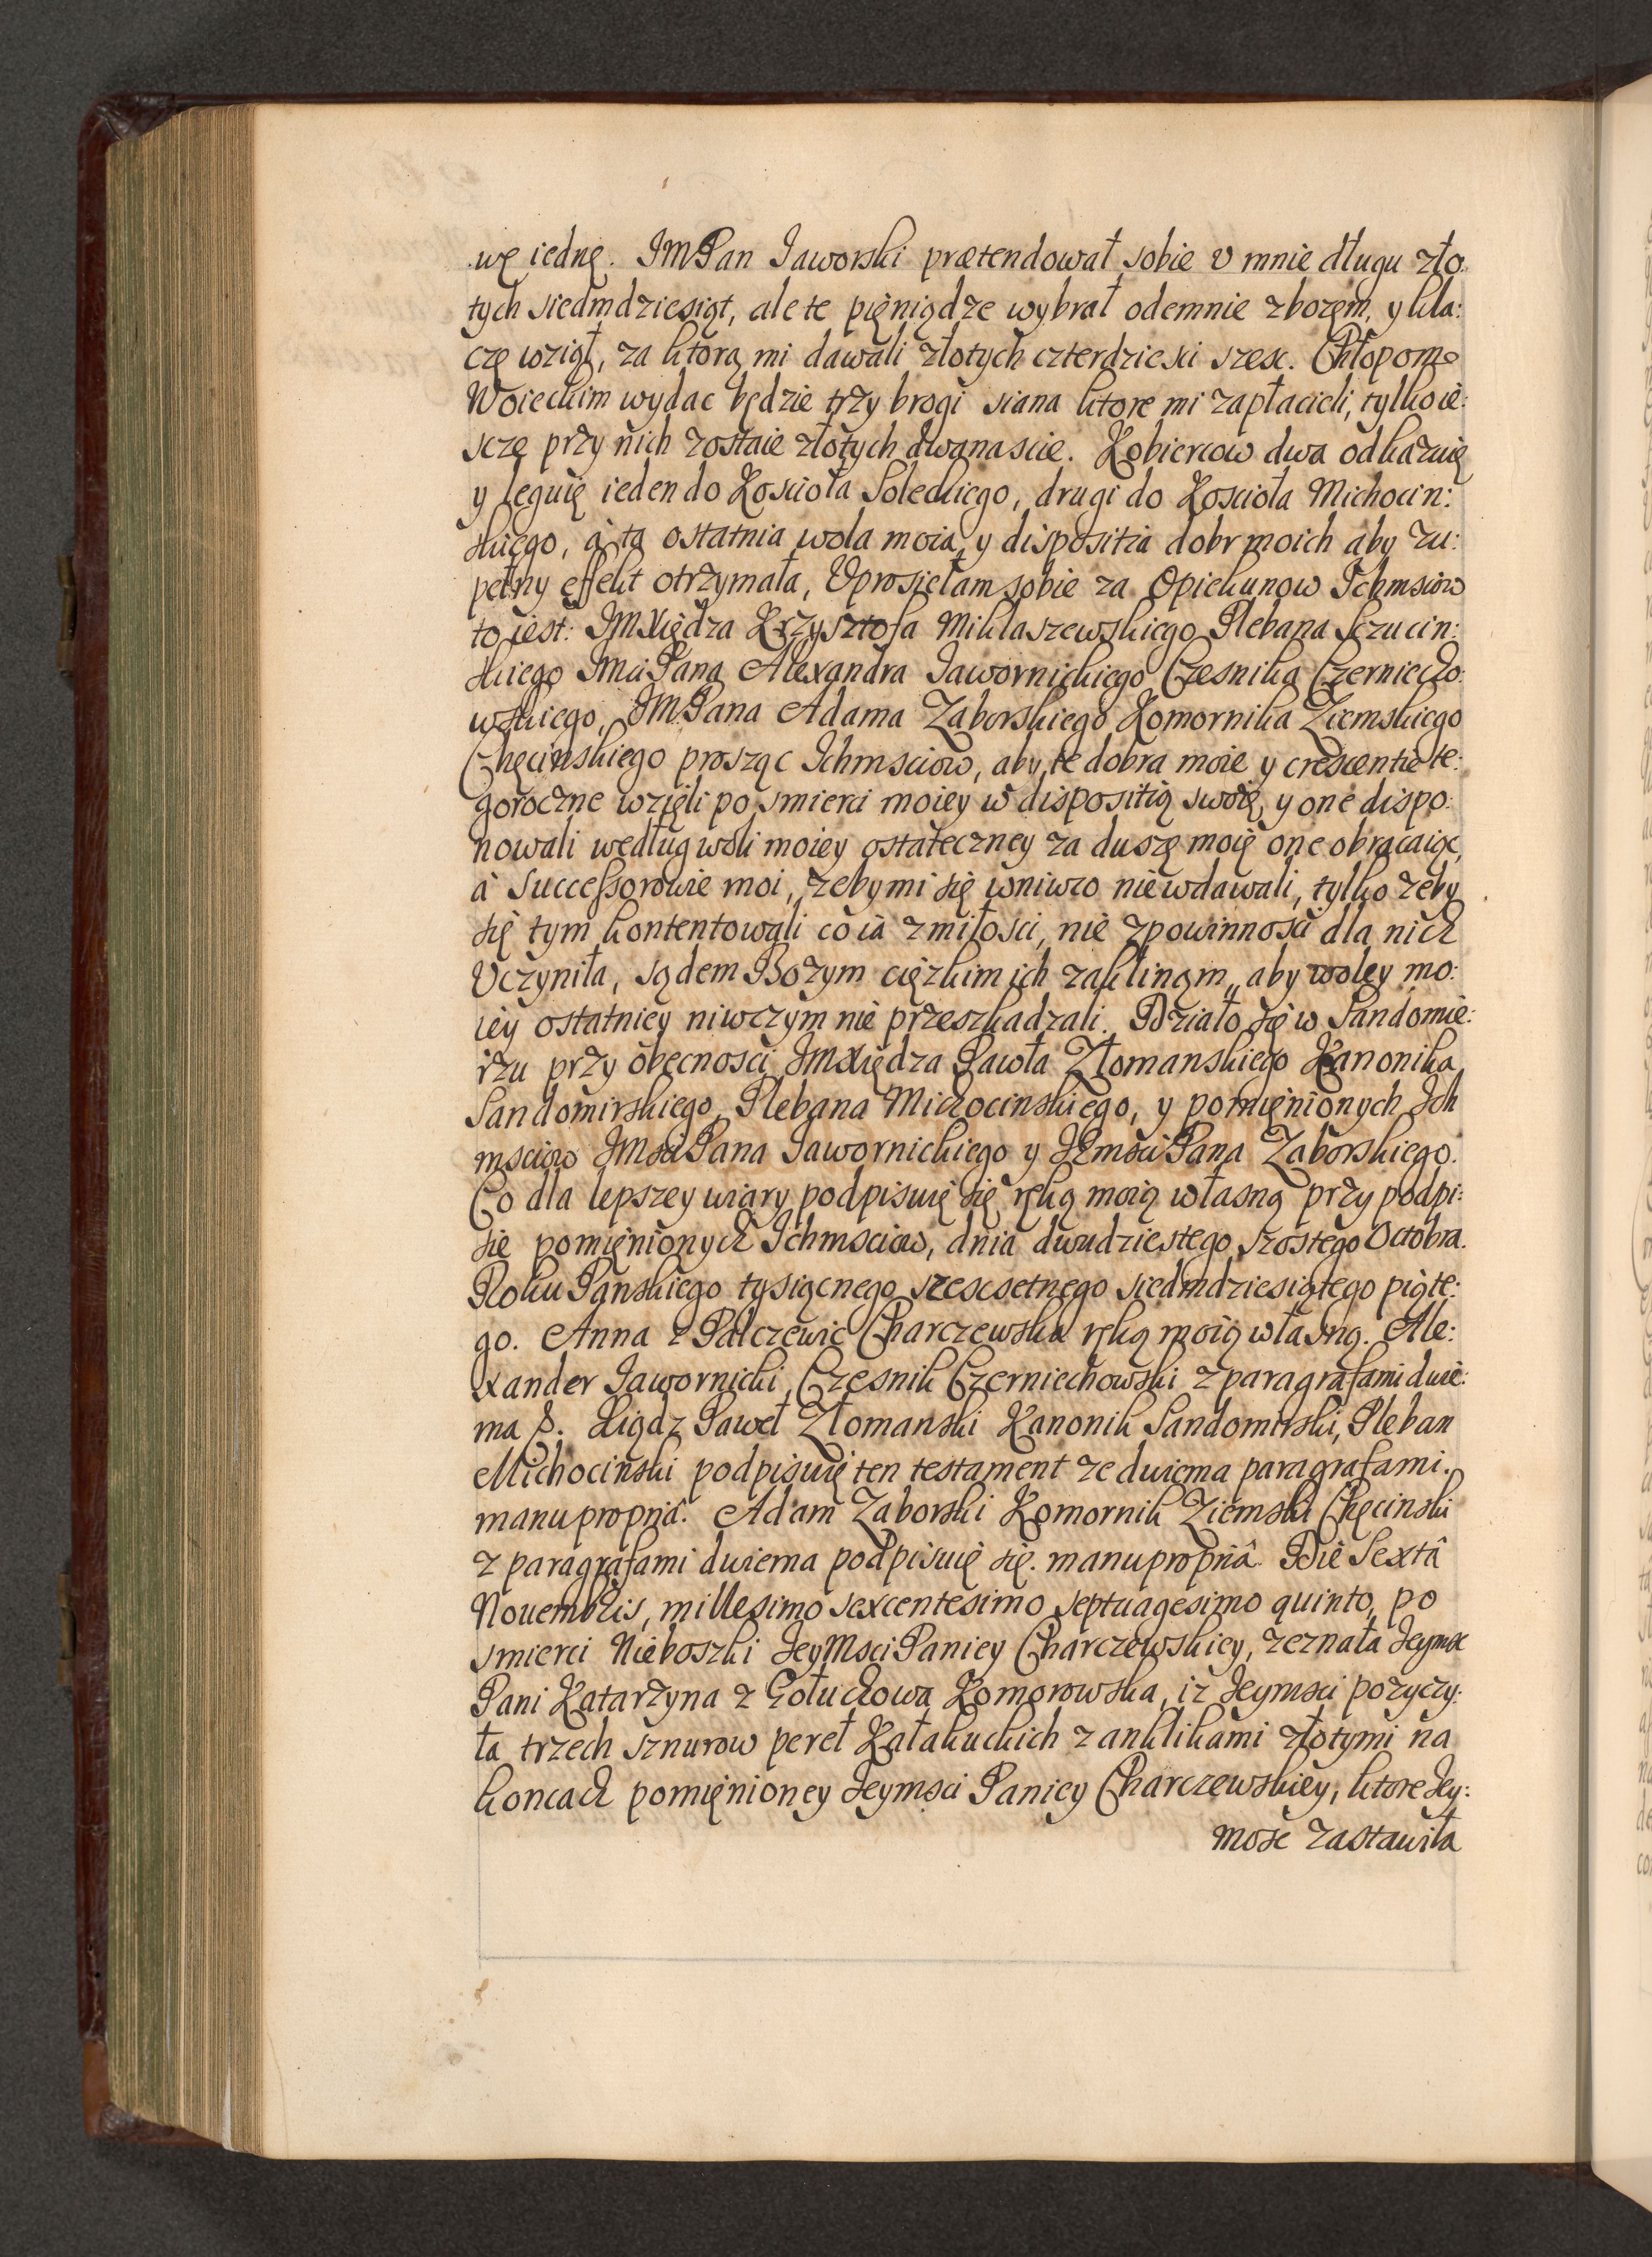 wę iednę. JMPan Jaworski prætendował sobie v mnie długu zło:
tych siedmdziesiąt, ale te pięniądze wybrał odemnie zbozęm, y kla:
czę wziął, za ktorą mi dawali złotych czterdzieści szesc. Chłopom
Woieckim wydac będzie trzy brogi siana ktore mi zapłacieli, tylko ie:
scze przy nich zostaie złotych dwanascie. Kobiercow dwa odkazuię
y leguię ieden do Koscioła Soleckiego, drugi do Kosciola Michocin:
skiego, à ta ostatnia wola moia, y dispositia dobr moich aby zu:
pełny effekt otrzymała, Vprosiełam sobie za Opiekunow Ichmsciow
to iest: JMXiędza Krzysztofa Miklaszewskiego Plebana Sczucin:
skiego JMciPana Alexandra Jawornickiego Czesnika Czerniecho:
wskiego, JMPana Adama Zaborskiego Komornika Ziemskiego
Chęcinskiego prosząc Ichmsciow, aby te dobra moie y crescentie te:
goroczne wzięli po smierci moiey w dispositią swoię, y one dispo:
nowali według woli moiey ostateczney za duszę moię one obracaiąc,
à Successorowie moi, zeby mi się wniwco niewdawali, tylko zeby
się tym kontentowali co ia z miłosci, nie z powinnosci dla nich
Vczyniła, sądem Bozym cięzkim ich zaklinąm, aby woley mo:
iey ostatniey niwczym nie przeszkadzali. Działo się w Sandomie:
rzu przy obecnosci JMXiędza Pawła Złomanskiego Kanonika
Sandomirskiego, Plebana Michocinskiego, y pomięnionych Ich
msciow JMsciPana Jawornickiego y JEmsciPana Zaborskiego.
Co dla lepszey wiary podpisuię się ręką moią własną przy podpi:
sie pomięnionych Ichmsciow, dnia dwudziestego szostego Octobra.
Roku Panskiego tysiącnego szescsetnego siedmdziesiątego piąte:
go. Anna z Palczewic Charczewska ręką moią własną. Ale:
xander Jawornicki, Czesnik Czerniechowski z paragrafami dwie:
ma §. Xiądz Paweł Złomanski Kanonik Sandomirski, Pleban
Michocinski podpisuię ten testament ze dwiema paragrafami.
manu propriâ. Adam Zaborski Komornik Ziemski Chęcinski
z paragrafami dwiema podpisuię się. manu propriâ. Die Sextâ
Nouembris, millesimo sexcentesimo septuagesimo quinto, po
smierci Nieboszki JeyMsciPaniey Charczewskiey, zeznała Jeymsc
Pani Katarzyna z Gołuchowa Komorowska, iz Jeymsci pozyczy:
ła trzech sznurow pereł Kałakuckich z anklikami złotymi na
koncach pomięnioney Jeymsci Paniey Charczewskiey, ktore Jey:
mosc zastawiła